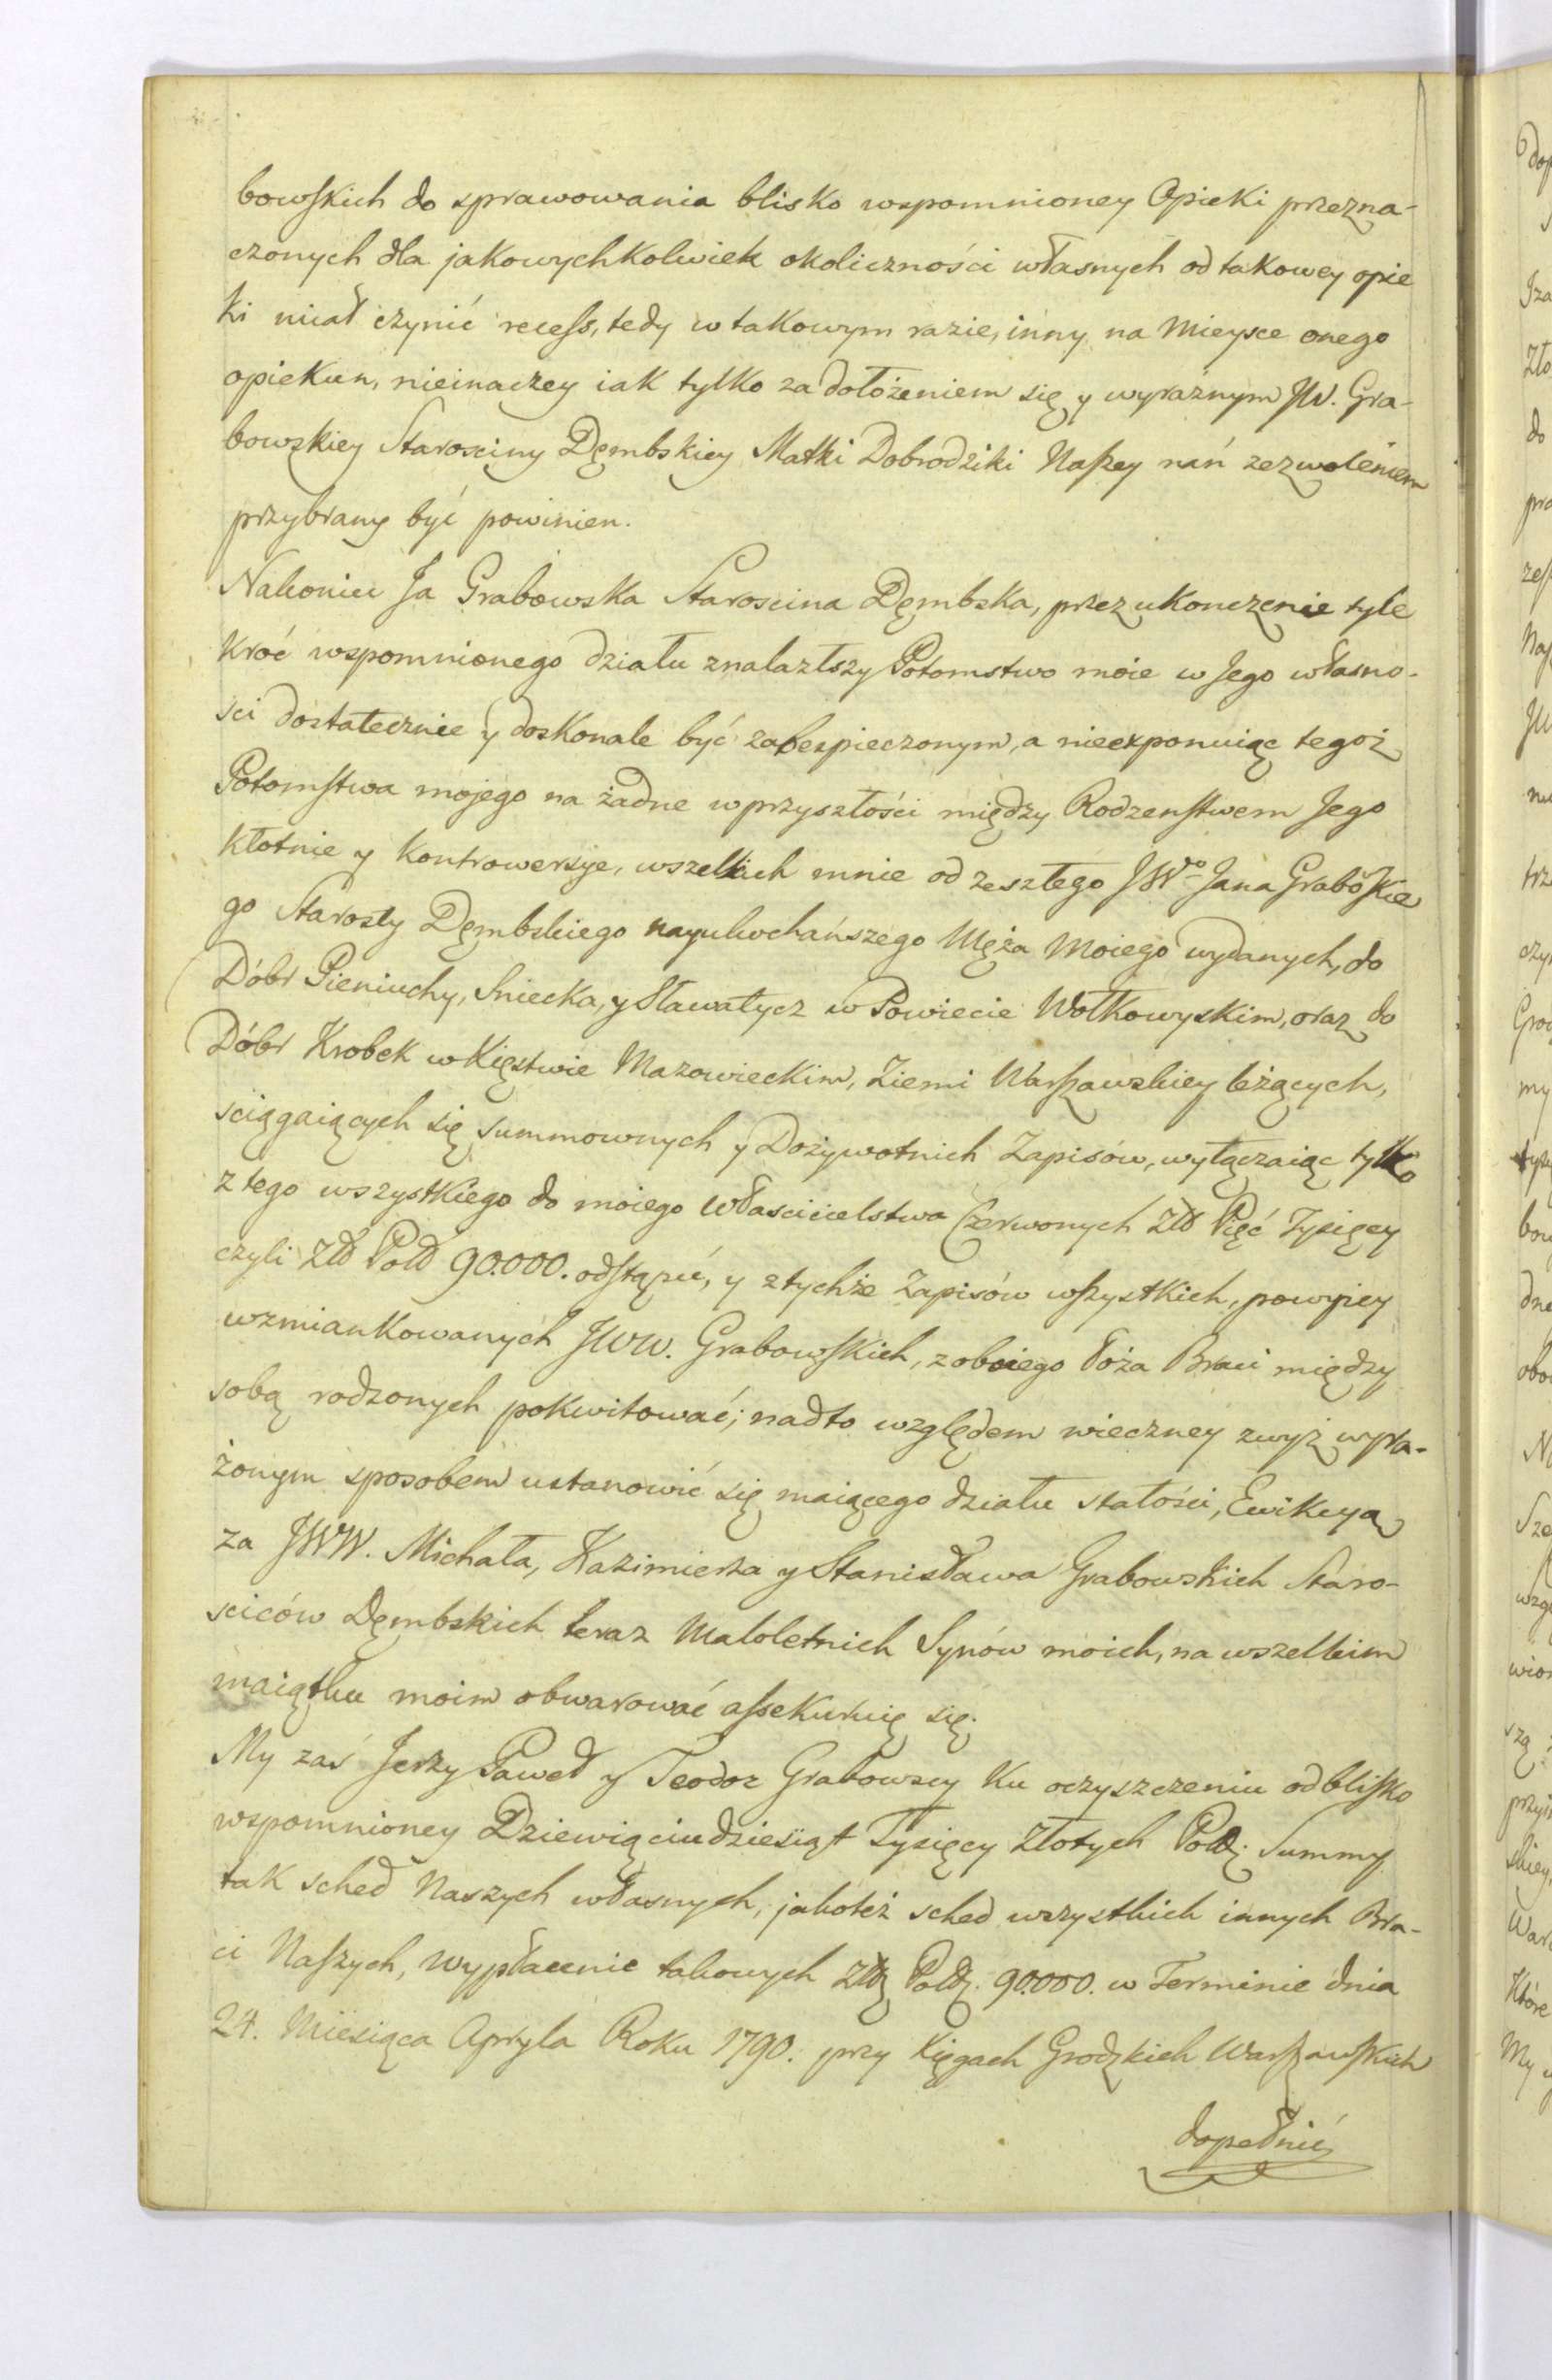 bowskich do sprawowania blisko wspomnioney Opieki przezna-
czonych dla jakowychkolwiek okoliczności własnych od takowey opie
ki miał czynić recess, tedy w takowym razie, inny na Mieysce onego
opiekun, nieinaczey iak tylko za dołożeniem się y wyraznym JW. Gra-
bowskiey Starosciny Dęmbskiey Matki Dobrodziki Naszey nań zezwoleniem
przybrany być powinien.
Nakoniec Ja Grabowska Starościna Dęmbska, przez ukonczenie tyle
kroć wspomnionego działu znalazłszy Potomstwo moie w Jego własno-
sci dostatecznie y doskonale być zabezpieczonym, a nieexponuiąc tegoż
Potomstwa mojego na żadne w przyszłości między Rodzenstwem Jego
kłotnie y kontrowersye, wszelkich mnie od zeszłego JWo Jana Grabōskie
go Starosty Dęmbskiego nayukochańszego Męża Moiego wydanych, do
Dóbr Pieniuchy, Sniecka, y Sławatycz w Powiecie Wołkowyskim, oraz do
Dóbr Krobek w Xięstwie Mazowieckim, Ziemi Warszawskiey leżących,
sciągaiących się summownych y Dożywotnich Zapisów, wyłączaiąc tylko
z tego wszystkiego do moiego Własciicielstwa Czerwonych Złł Pięć Tysięcy
czyli Złł Poll 90.000. odstąpić, y z tychże Zapisów wszystkich, powyżey
wzmiankowanych JWW. Grabowskich, z oboiego łoża Braci między
sobą rodzonych pokwitować; nadto względem wieczney zwyż wyra-
żonym sposobem ustanowić się maiącego działu stałości, Ewikcyą
za JWW. Michała, Kazimierza y Stanisława Grabowskich Staro-
sciców Dęmbskich teraz Małoletnich Synów moich, na wszelkim
maiątku moim obwarować assekuruię się.
My zaś Jerzy Paweł y Teodor Grabowscy ku oczyszczeniu od blisko
wspomnioney Dziewięciudziesiąt Tysięcy Złotych Poll: Summy
tak sched Naszych własnych, jakoteż sched wszystkich innych Bra-
ci Naszych, wypłacenie takowych Złł Poll. 90.000. w Terminie dnia
24. Miesiąca Apryla Roku 1790. przy Xięgach Grodzkich Warszawskich
dopełnić